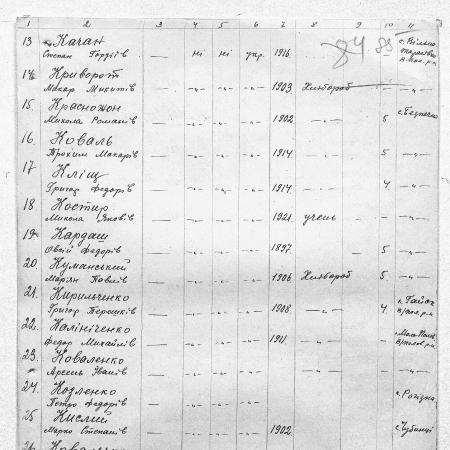 1 2 3 4 5 6 7 8 9 10 11
13 Качан
Степан Гордіїв — ні ні укр. 1916 — 84 83
14 Криворот
Макар Микитів — 1903 Хлібороб
15 Красножон
Микола Романів — 1902 — 5
16. Коваль
Трохим Макарів — 1914. — 5
17 Кліщ
Григор Федорів — 1914 — 4
18 Костир
Микола Яковів — 1921 учень —
19 Кардаш
Овсій Федорів — 1897. — 5
20. Куманський
Мар'ян Павлів — 1906 Хлібороб 5
21. Кирильченко
Григор Терешків — 1908 — 4
22. Калініченко
Федор Михайлів — 1911
23. Коваленко
Арсень Іванів —
24. Козленко с. Рогізна
Петро Федорів —
25 Кислий
Марко Степанів — 1902